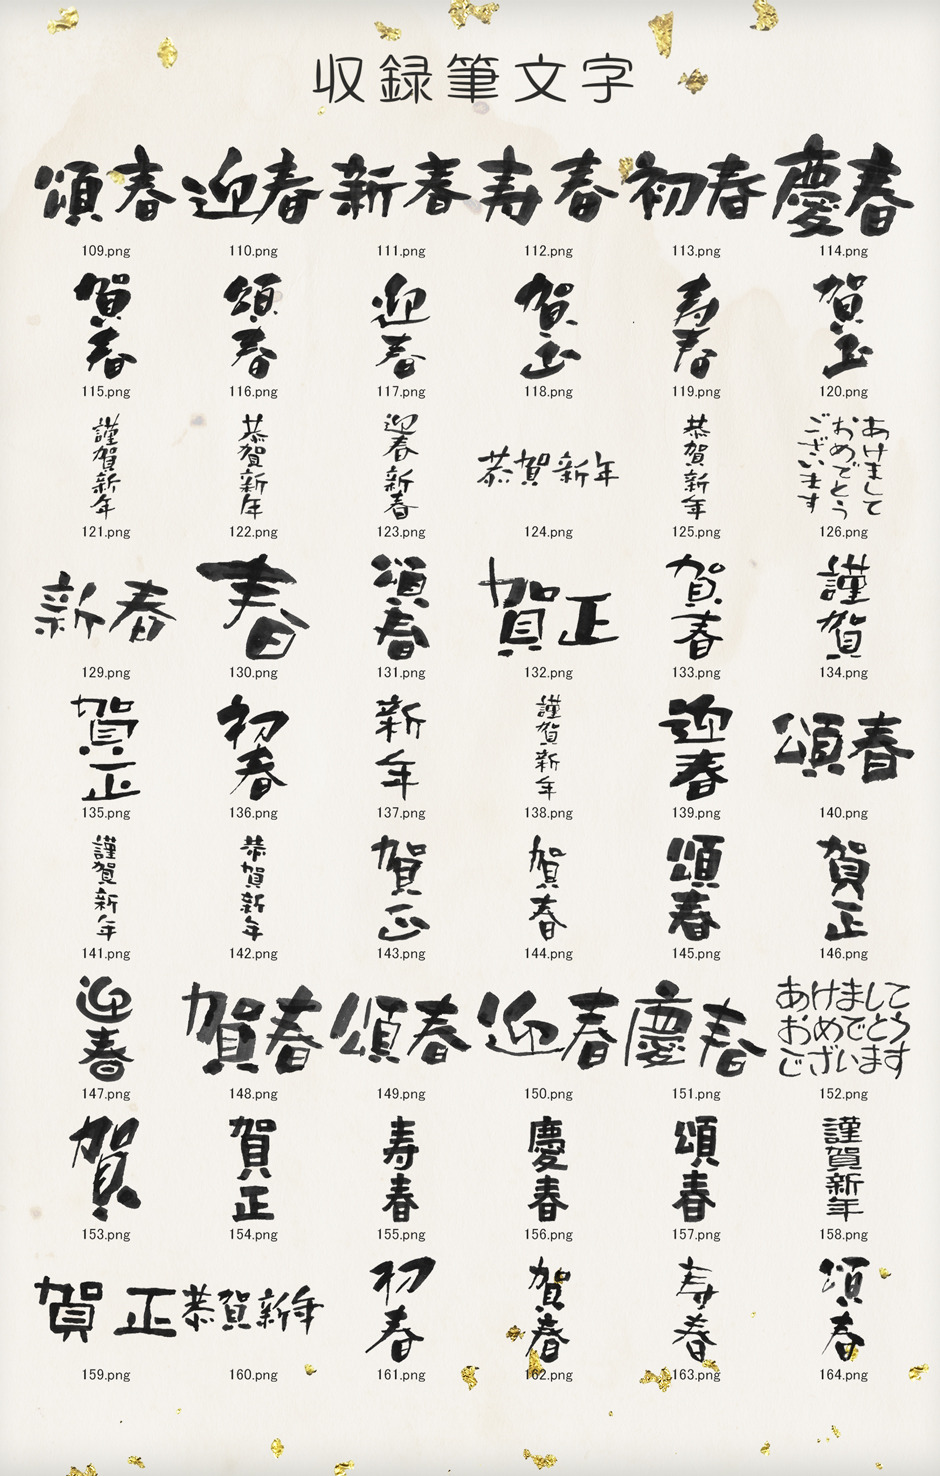 収録筆文字
頌春 迎春 新春 寿春 初春 慶春
109.png 110.png 111.png 112.png 113.png 114.png
賀春 頌春 迎春 賀正 寿春 賀正
115.png 116.png 117.png 118.png 119.png 120.png
謹賀新年 恭賀新年 迎春新春 恭賀新年 恭賀新年 あけまして おめでとう ございます
121.png 122.png 123.png 124.png 125.png 126.png
新春 春 頌春 賀正 賀春 謹賀
129.png 130.png 131.png 132.png 133.png 134.png
賀正 初春 新年 謹賀新年 迎春 頌春
135.png 136.png 137.png 138.png 139.png 140.png
謹賀新年 恭賀新年 賀正 賀春 頌春 賀正
141.png 142.png 143.png 144.png 145.png 146.png
迎春 賀春 頌春 迎春 慶春 あけまして おめでとう ございます
147.png 148.png 149.png 150.png 151.png 152.png
賀 賀正 寿春 慶春 頌春 謹賀新年
153.png 154.png 155.png 156.png 157.png 158.png
賀正 恭賀新年 初春 賀春 寿春 頌春
159.png 160.png 161.png 162.png 163.png 164.png